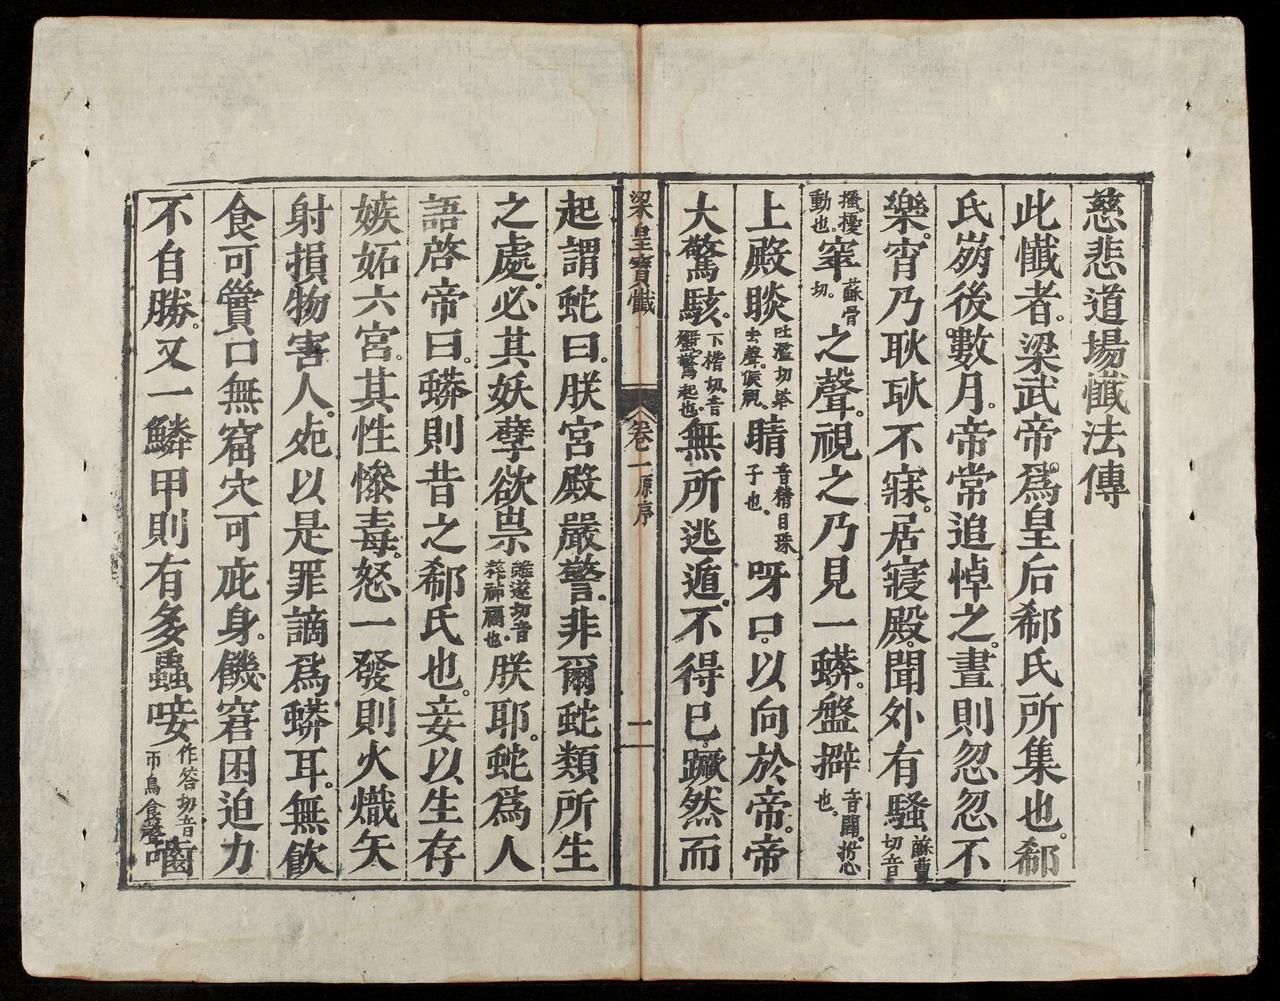 慈悲道場懺法傳
此懺者。梁武帝。爲皇后郗氏所集也。郗
氏崩後。數月。帝常追悼之。晝則忽忽不
樂。宵乃耿耿不寐。居寢殿。聞外有騷蘇曹切音
搔。擾動也。窣蘇骨切。之聲。視之乃見一蟒。盤擗音闢。拊心也。
上殿睒吐濫切。攀去聲。候視。睛音精目珠子也。呀口。以向於帝。帝
大驚駭。下楷切音蟹。驚起也。無所逃遁。不得已。蹶然而
梁皇寶懺 卷一原序 二
起謂蛇曰。朕宮殿嚴警。非爾蛇類所生
之處。必其妖孽欲祟雖遂切音粹神禍也。朕耶。蛇爲人
語啓帝曰。蟒則昔之郗氏也。妾以生存
嫉妬六宮。其性慘毒。怒一發則火熾矢
射損物害人。死以是罪謫爲蟒耳。無飲
食可實口無窟穴可庇身。饑窘困迫力
不自勝。又一鱗甲則有多蟲唼作答切音帀鳥食聲嚙